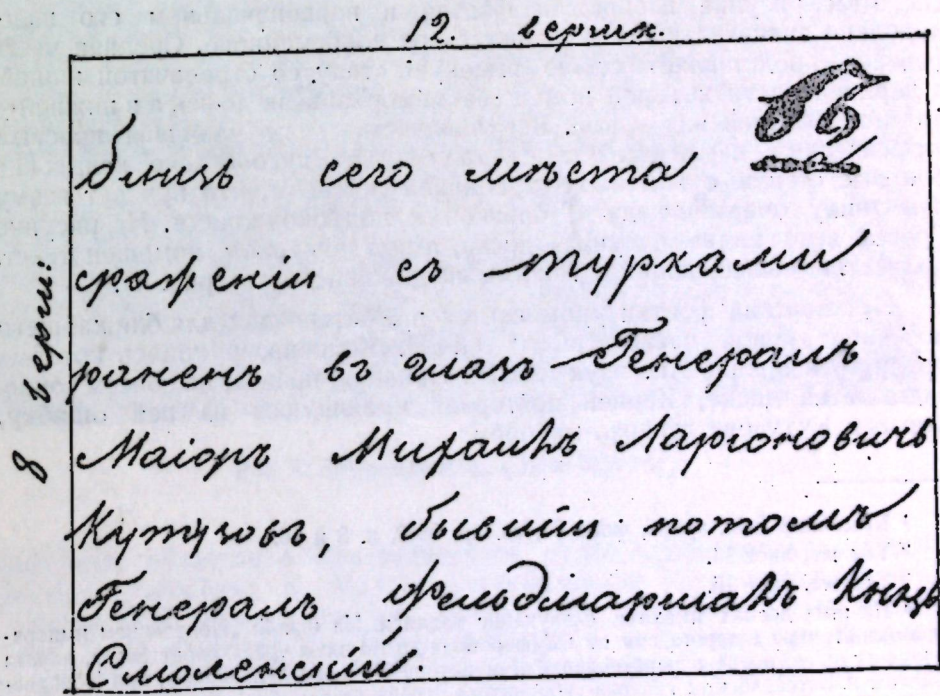 12. вершк.
8 верш.
близь сего мѣста
сраженіи съ турками
раненъ въ глазъ Генералъ
Маіоръ Михаилъ Ларіоновичь
Кутузовъ, бывшій потомъ
Генералъ Фельдмаршалъ Князь
Смоленскій.